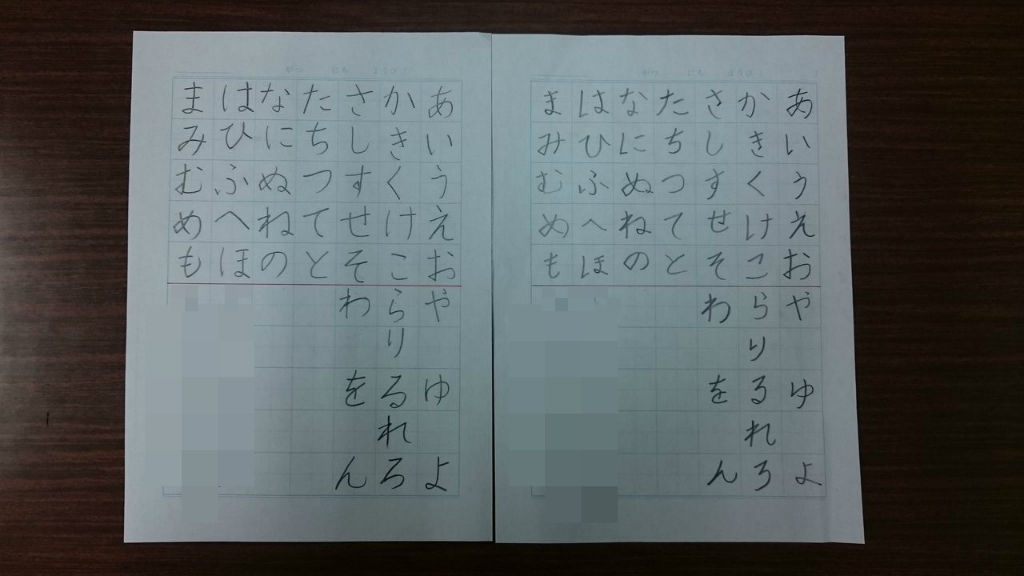 がつ にち ようび
あいうえお
かきくけこ
さしすせそ
たちつてと
なにぬねの
はひふへほ
まみむめも
やゆよ
らりるれろ
わをん
がつ にち ようび
あいうえお
かきくけこ
さしすせそ
たちつてと
なにぬねの
はひふへほ
まみむめも
やゆよ
らりるれろ
わをん